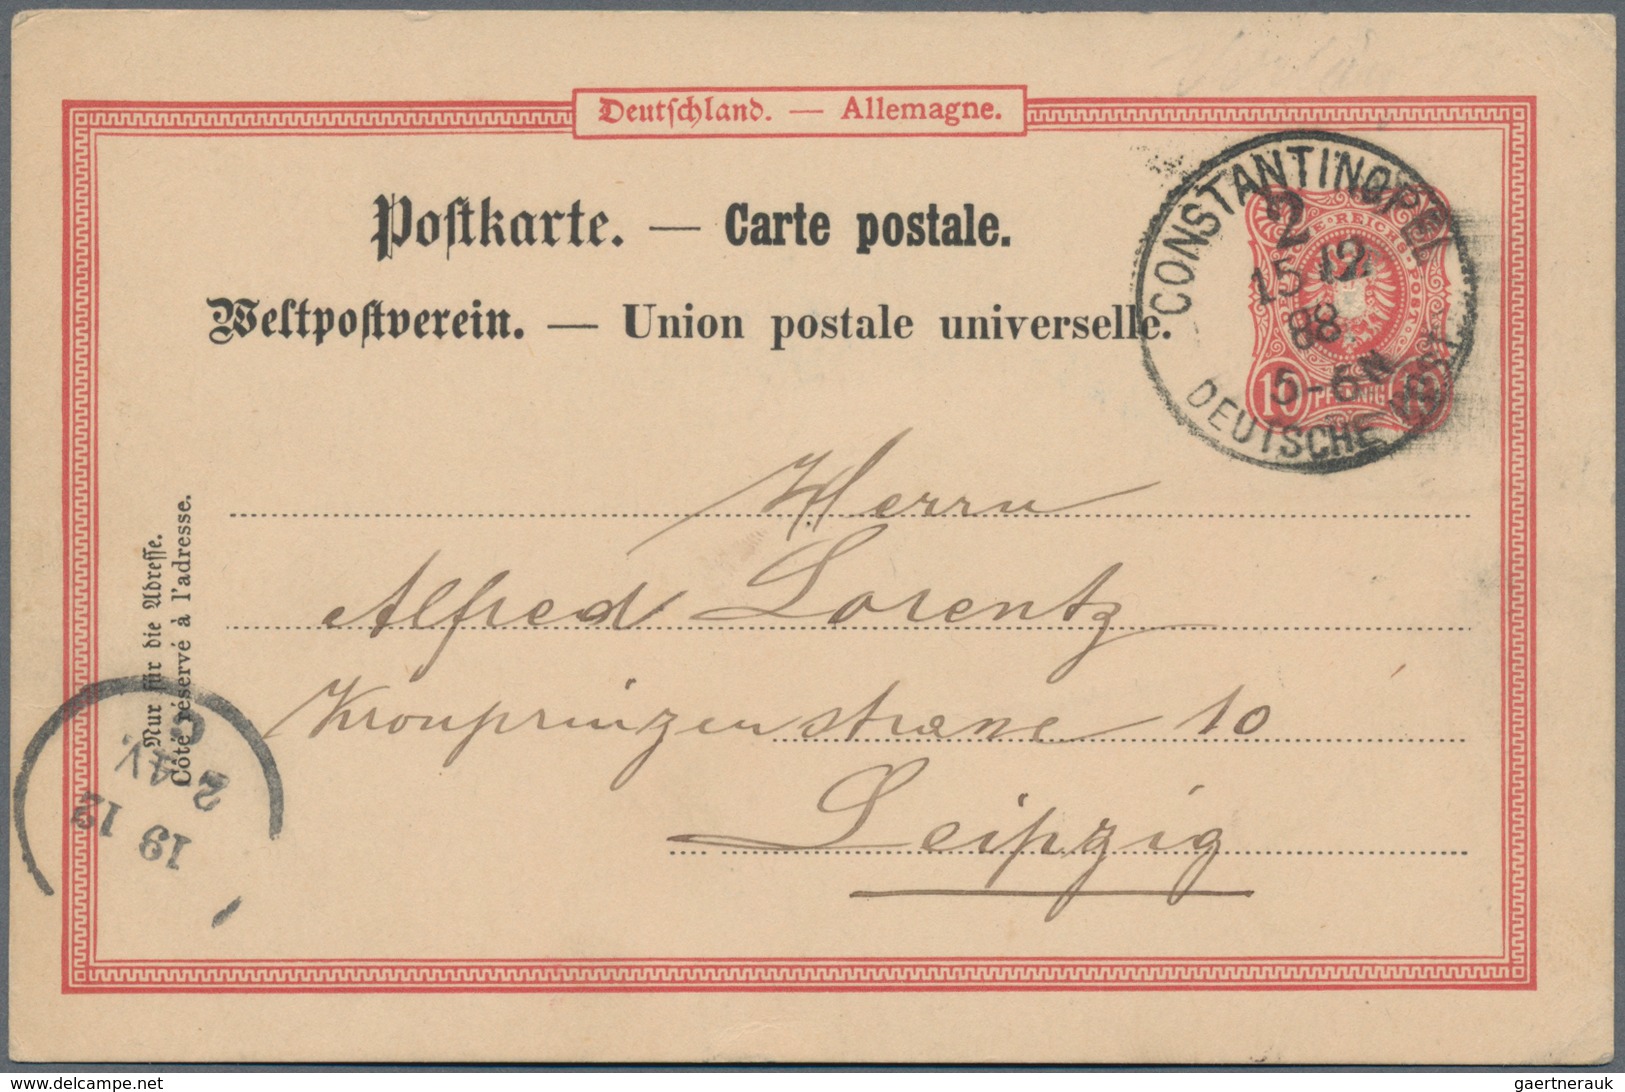 Deutschland. — Allemagne.
Postkarte. — Carte postale.
Weltpostverein. — Union postale universelle.
CONSTANTINOPEL
2
15 12
88
5-6 N
DEUTSCHE POST
REICHS POST
10 PFENNIG 10
Nur für die Adresse.
Côté réservé à l'adresse.
Herrn
Alfred Lorentz
Kronprinzenstrasse 10
Leipzig
19 12
2 4 V.
www.delcampe.net
gaertnerauk